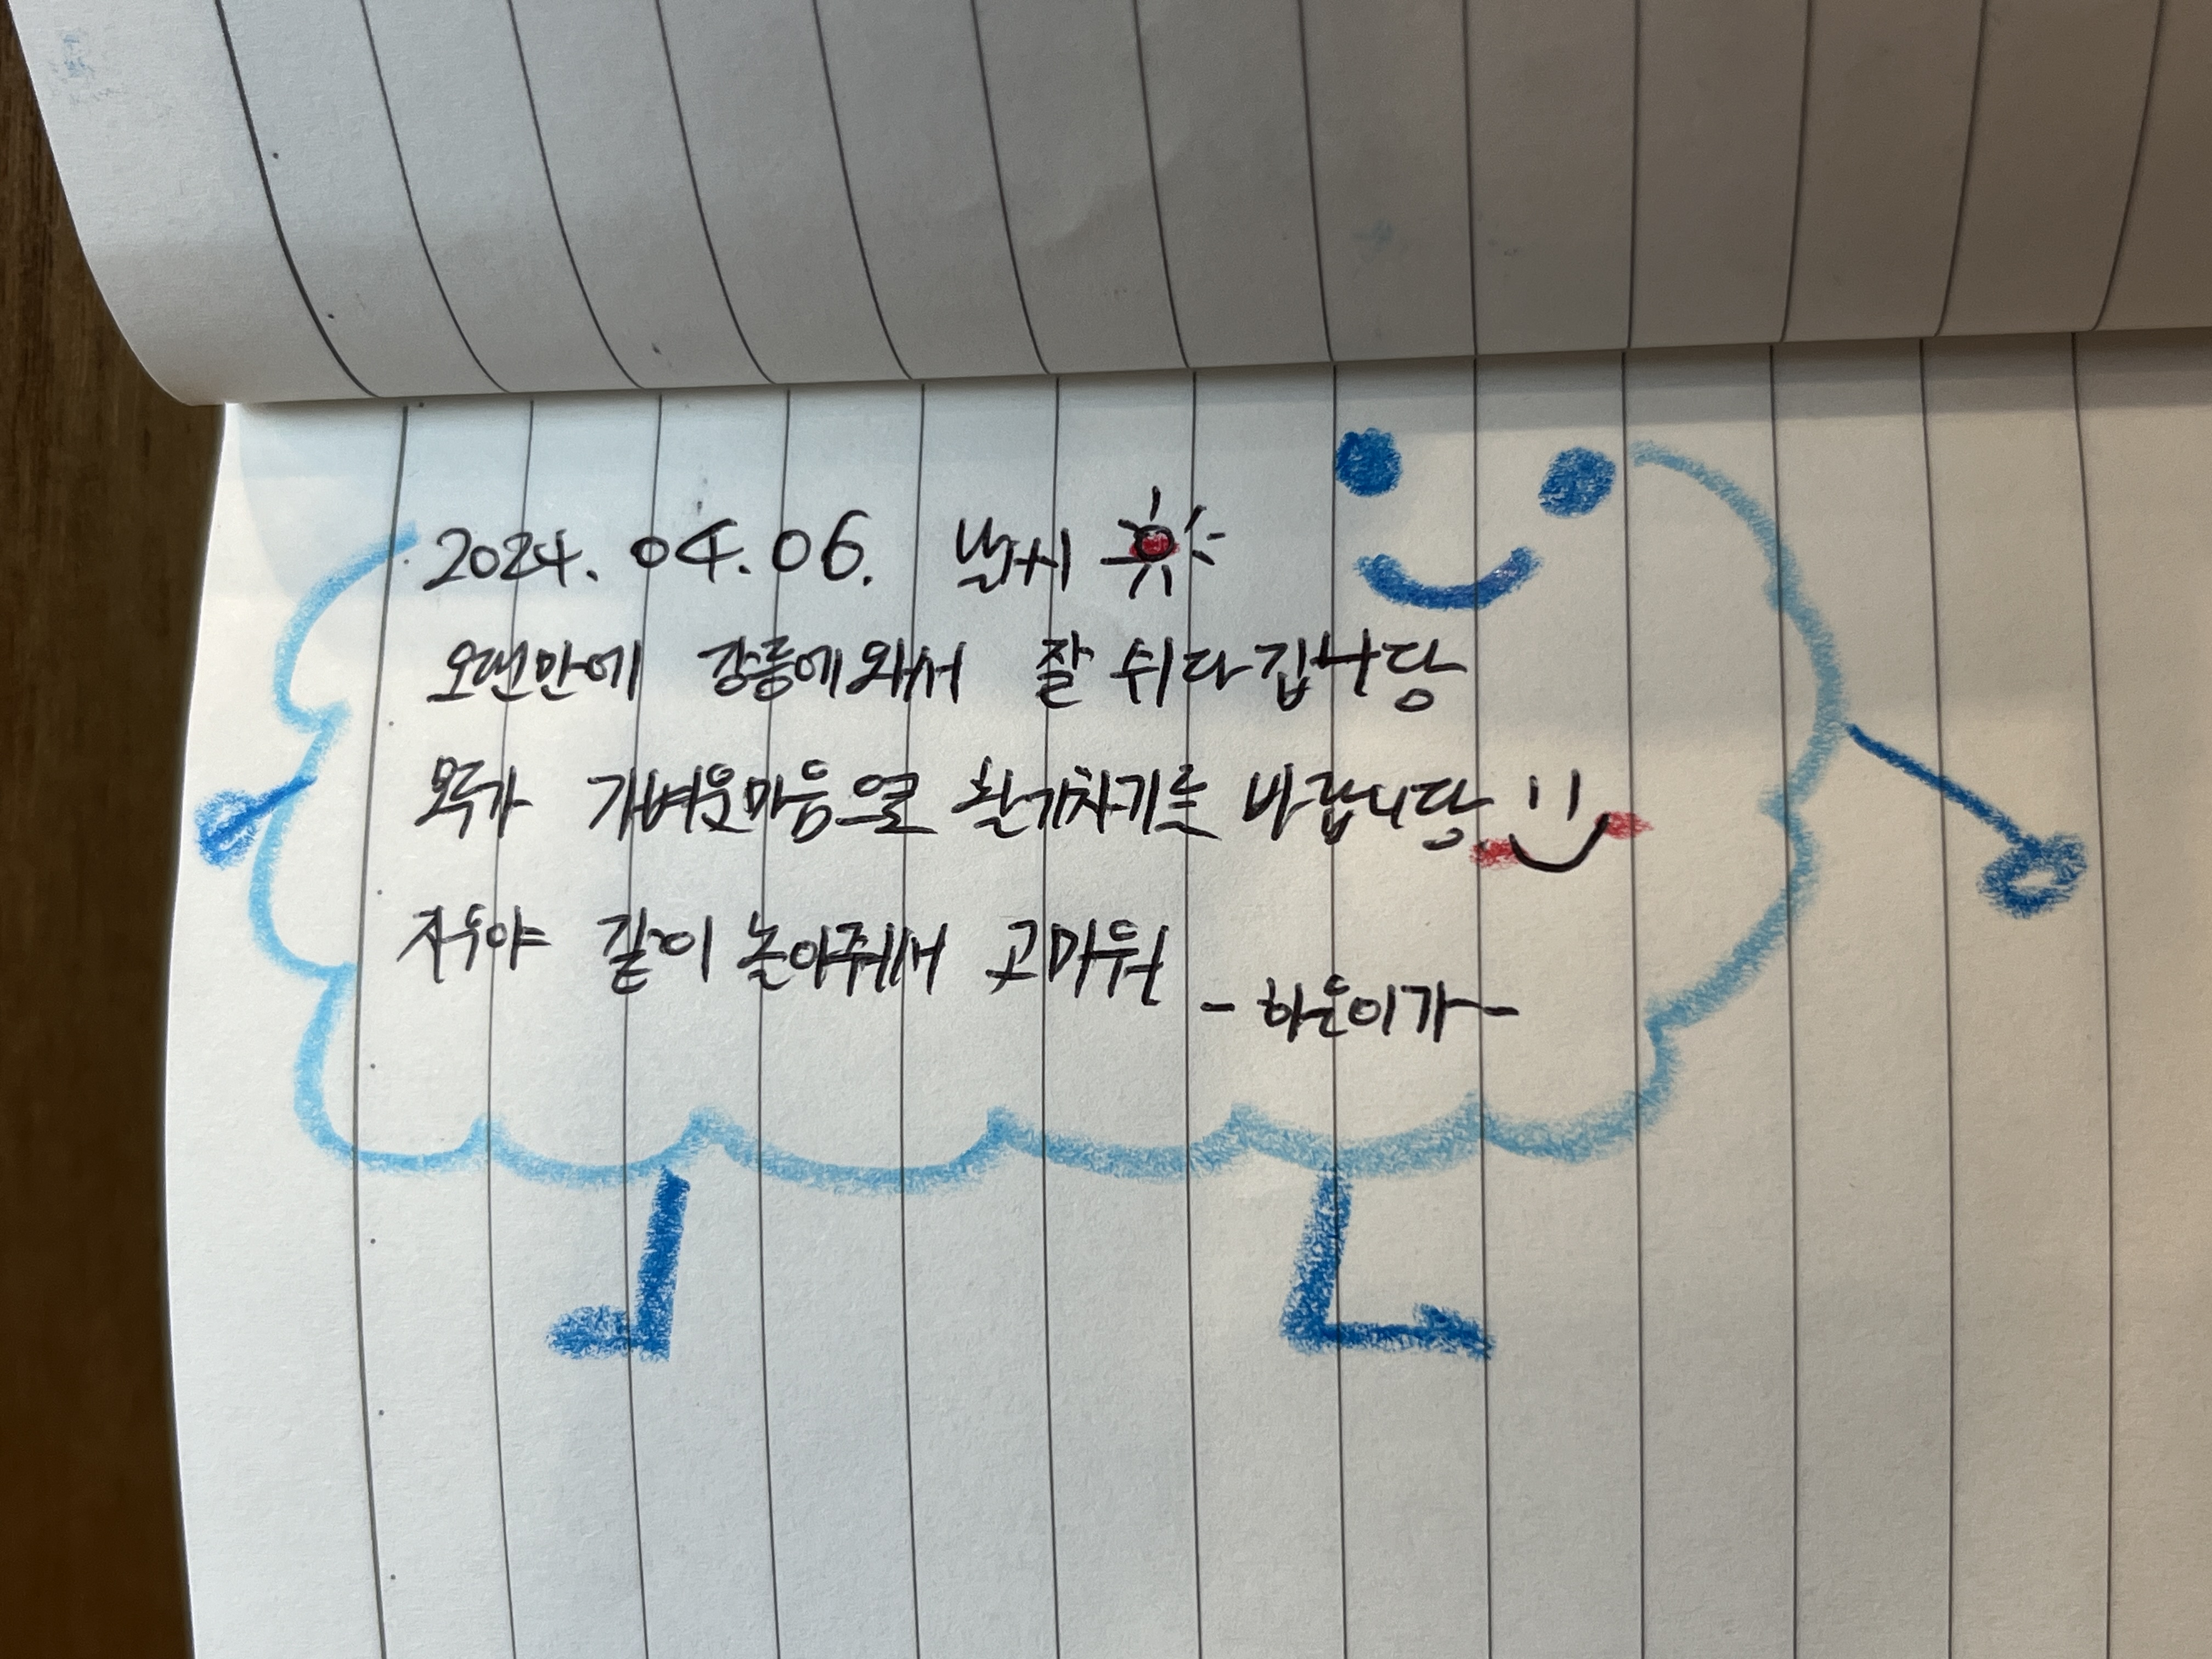 2024. 04. 06. 날씨
오랜만에 강릉에 와서 잘 쉬다 갑니당
모두가 가벼운 마음으로 활기차기를 바랍니당
지우야 같이 놀아줘서 고마워
- 하운이가 -